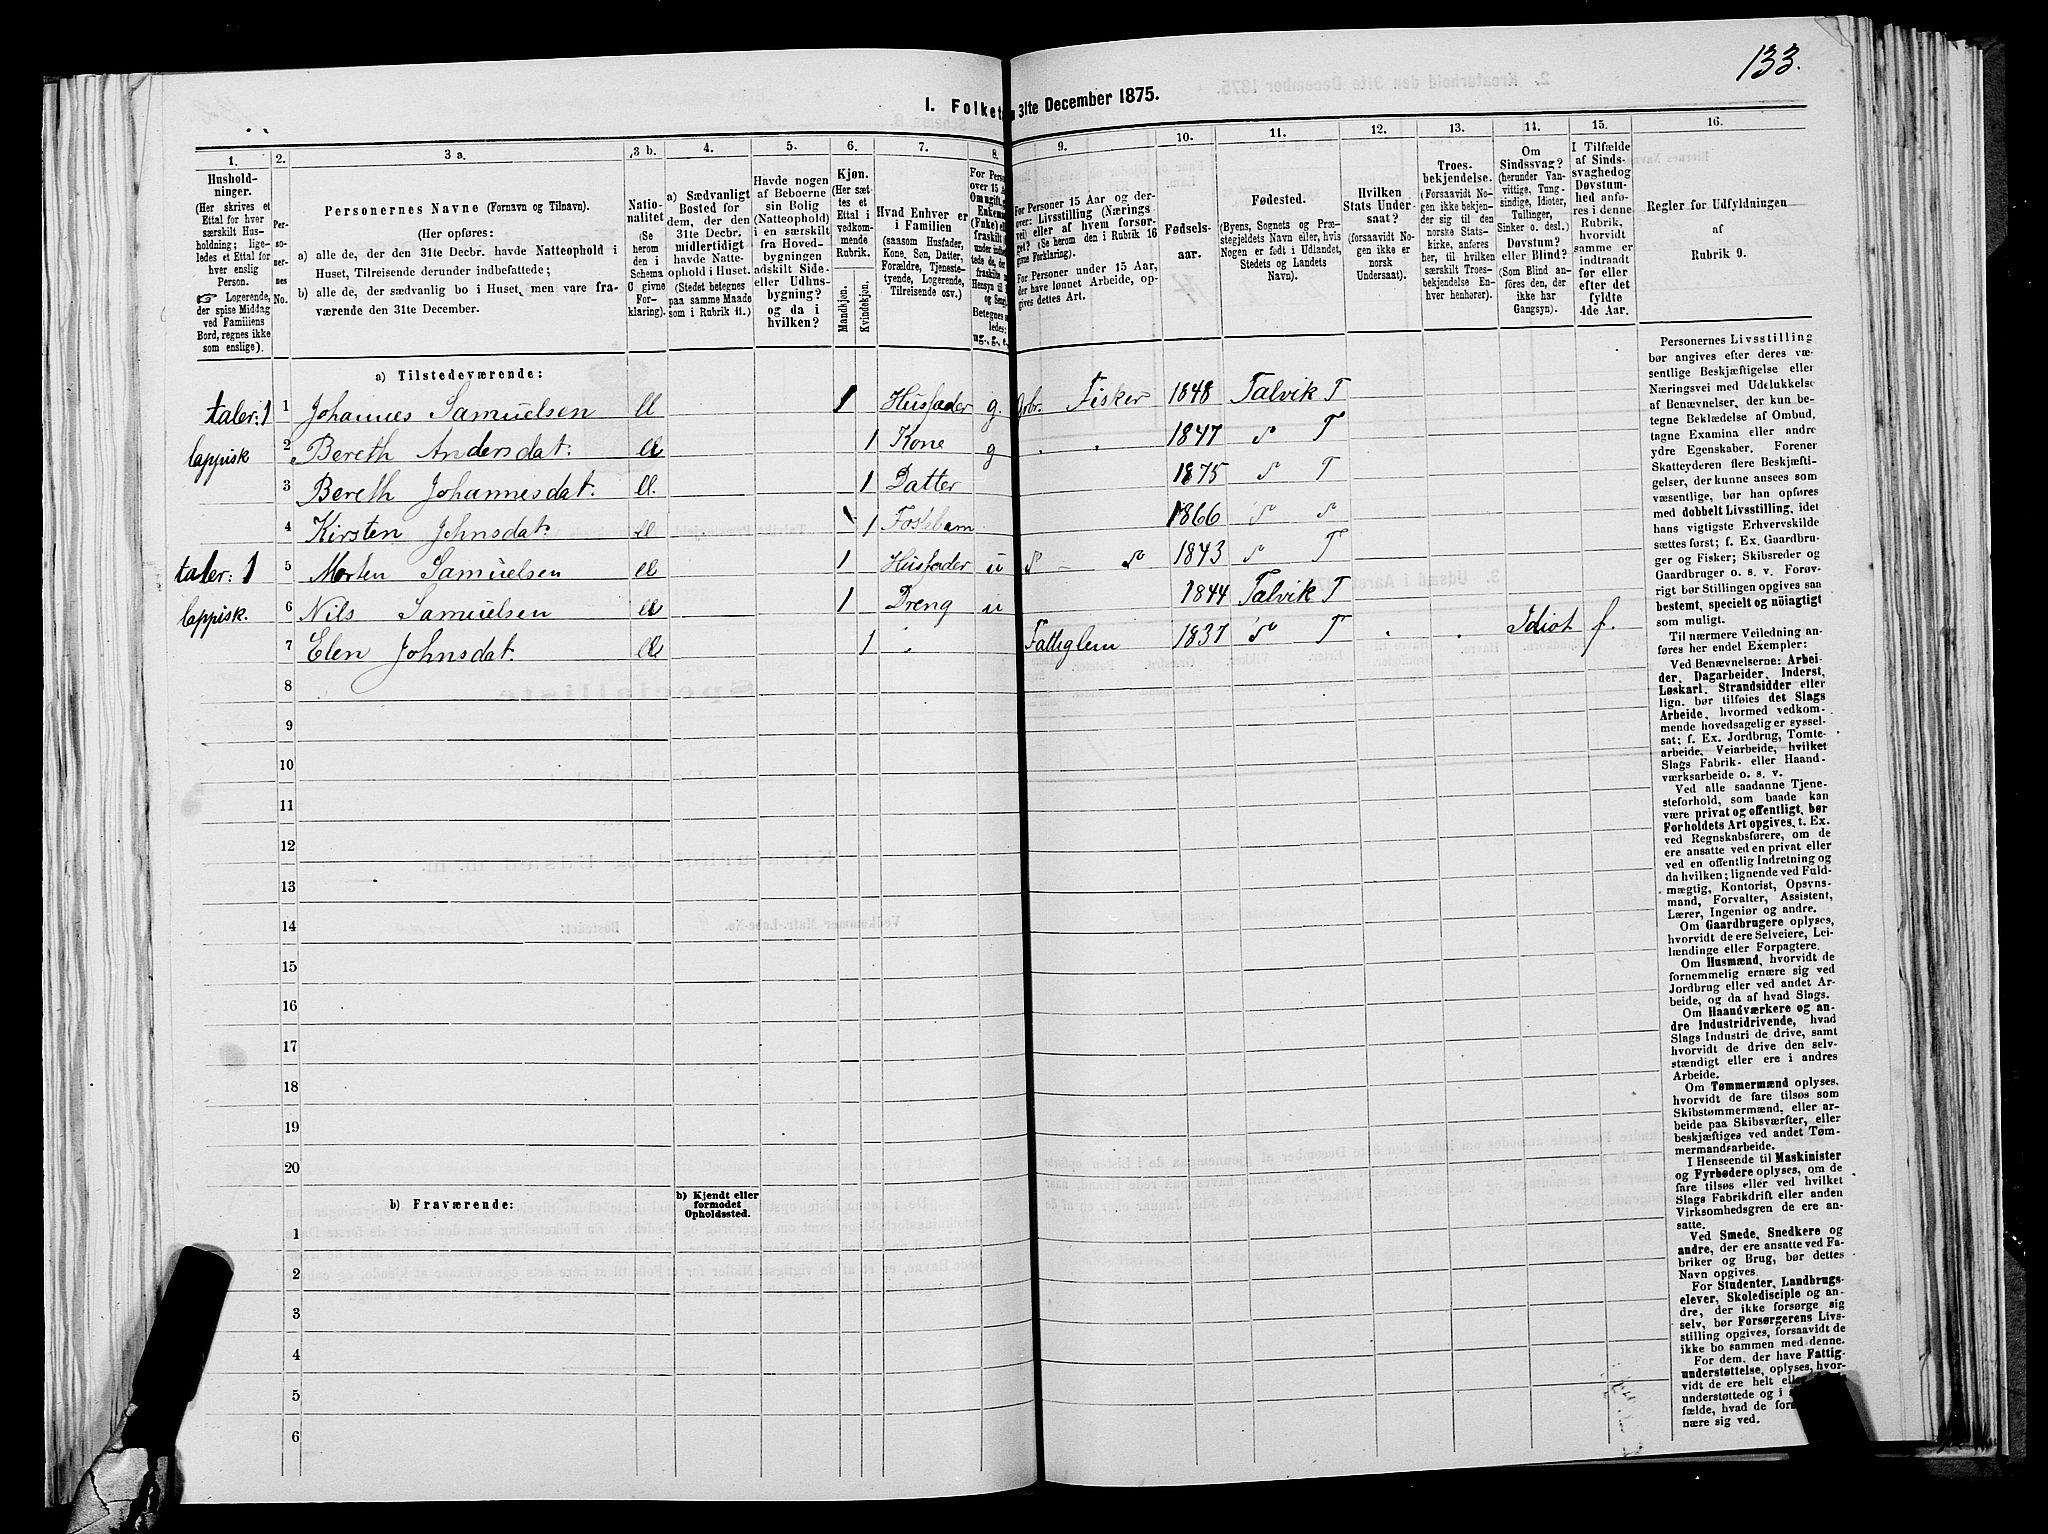 133.
I. Folket 31te December 1875.
1. 2. 3 a. 3 b. 4. 5. 6. 7. 8. 9. 10. 11. 12. 13. 14. 15. 16.
Hushold-
ninger.
(Her skrives et
Ettal for hver
særskilt Hus-
holdning; lige-
ledes et Ettal for
hver enslig
Person.
☞ Logerende,
der spise Middag
ved Familiens
Bord, regnes ikke
som enslige).
Per-
so-
ner-
nes
No.
Personernes Navne (Fornavn og Tilnavn).
(Her opføres:
a) alle de, der den 31te Decbr. havde Natteophold i
Huset, Tilreisende derunder indbefattede;
b) alle de, der sædvanlig bo i Huset, men vare fra-
værende den 31te December.
Natio-
nalitet
(Se
herom
den i
Schema
C givne
For-
klaring).
a) Sædvanligt
Bosted for
dem, der den
31te Decbr.
midlertidigt
havde Natte-
ophold i Huset.
(Stedet betegnes
paa samme Maade
som i Rubrik 11.)
Havde nogen
af Beboerne
sin Bolig
(Natteophold)
i en særskilt
fra Hoved-
bygningen
adskilt Side-
eller Udhus-
bygning?
og da i
hvilken?
Kjøn.
(Her sæt-
tes et
Ettal i
vedkom-
mende
Rubrik.
Mandkjøn.
Kvindekjøn.
Hvad Enhver er
i Familien
(saasom Husfader,
Kone, Søn, Datter,
Forældre, Tjeneste-
tyende, Logerende,
Tilreisende osv.)
For Person
over 15 Aa
Betegnes
ledes:
ug., g., e.,
For Personer 15 Aar og der-
over: Livsstilling (Nærings
vei) eller af hvem forsør-
get? (Se herom den i Rubrik 16
givne Forklaring).
For Personer under 15 Aar,
der have lønnet Arbeide, op-
gives dettes Art.
Fødsels-
aar.
Fødested.
(Byens, Sognets og Præ-
stegjeldets Navn eller, hvis
Nogen er født i Udlandet,
Stedets og Landets
Navn).
Hvilken
Stats Under-
saat?
(forsaavidt No-
gen ikke er
norsk
Undersaat).
Troes-
bekjendelse.
(Forsaavidt No-
gen ikke bekjen-
der sig til den
norske Stats-
kirke, anføres
her, til hvilken
særskilt Troes-
bekjendelse En-
hver henhører).
Om
Sindssvag?
(herunder Van-
vittige, Tung-
sindige, Idioter,
Tullinger,
Sinker o. desl.)
Døvstum?
eller Blind?
(Som Blind an-
føres den, der
ikke har
Gangsyn).
I Tilfælde
af Sinds-
svaghed og
Døvstum-
hed anfø-
res i denne
Rubrik,
hvorvidt
samme er
indtraadt
før eller
efter det
fyldte
4de Aar.
Regler for Udfyldningen
af
Rubrik 9.
a) Tilstedeværende:
taler: 1 1 Johannes Samuelsen 1 Husfader g. Fisker 1848 Talvik T
lappisk 2 Bereth Andersdat. 1 Kone g 1847 T
3 Bereth Johannesdat. 1 Datter 1875 T
4 Kirsten Johnsdat. 1 1866
taler: 1 5 Morten Samuelsen 1 Husfader u 1843 T
lappisk. 6 Nils Samuelsen 1 Dreng u 1844 Talvik T
7 Elen Johnsdat. 1 Fattiglem 1837 T Idiot f.
8
9
10
11
12
13
14
15
16
17
18
19
20
b) Fraværende:
b) Kjendt eller
formodet
Opholdssted.
1
2
3
4
5
6
Personernes Livsstilling
bør angives efter deres væ-
sentlige Beskjæftigelse eller
Næringsvei med Udelukkelse
af Benævnelser, der kun be-
tegne Beklædelse af Ombud,
tagne Examina eller andre
ydre Egenskaber. Forener
Skatteyderen flere Beskjæfti-
gelser, der kunne ansees som
væsentlige, bør han opføres
med dobbelt Livsstilling, idet
hans vigtigste Erhvervskilde
sættes først; f. Ex. Gaardbru-
ger og Fisker; Skibsreder og
Gaardbruger o. s. v. Forøv-
rigt bør Stillingen opgives saa
bestemt, specielt og nöiagtigt
som muligt.
Til nærmere Veiledning an-
føres her endel Exempler:
Ved Benævnelserne: Arbei-
der, Dagarbeider, Inderst,
Løskarl, Strandsidder eller
lign. bør tilføies det Slags
Arbeide, hvormed vedkom-
mende hovedsagelig er syssel-
sat; f. Ex. Jordbrug, Tomte-
arbeide, Veiarbeide, hvilket
Slags Fabrik- eller Haand-
værksarbeide o. s. v.
Ved alle saadanne Tjene-
steforhold, som baade kan
være privat og offentligt, bør
Forholdets Art opgives, t. Ex.
ved Regnskabsførere, om de
ere ansatte ved en privat eller
ved en offentlig Indretning og
da hvilken; lignende ved Fuld-
mægtig, Kontorist, Opsyns-
mand, Forvalter, Assistent,
Lærer, Ingeniør og andre.
Om Gaardbrugere oplyses,
hvorvidt de ere Selveiere, Lei-
lændinge eller Forpagtere.
Om Husmænd, hvorvidt de
fornemmelig ernære sig ved
Jordbrug eller ved andet Ar-
beide, og da af hvad Slags.
Om Haandværkere og an-
dre Industridrivende, hvad
Slags Industri de drive, samt
hvorvidt de drive den selv-
stændigt eller ere i andres
Arbeide.
Om Tømmermænd oplyses,
hvorvidt de fare tilsøs som
Skibstømmermænd, eller ar-
beide paa Skibsværfter, eller
beskjæftiges ved andet Tøm-
mermandsarbeide.
I Henseende til Maskinister
og Fyrbødere oplyses, om de
fare tilsøs eller ved hvilket
Slags Fabrikdrift eller anden
Virksomhedsgren de ere an-
satte.
Ved Smede, Snedkere og
andre, der ere ansatte ved Fa-
briker og Brug, bør dettes
Navn opgives.
For Studenter, Landbrugs-
elever, Skoledisciple og an-
dre, der ikke forsørge sig
selv, bør Forsørgerens Livs-
stilling opgives, forsaavidt de
ikke bo sammen med denne.
For dem, der have Fattig-
understøttelse, oplyses, hvor-
vidt de ere helt
understøttede og i
fælde, hvad de
nære sig ved.